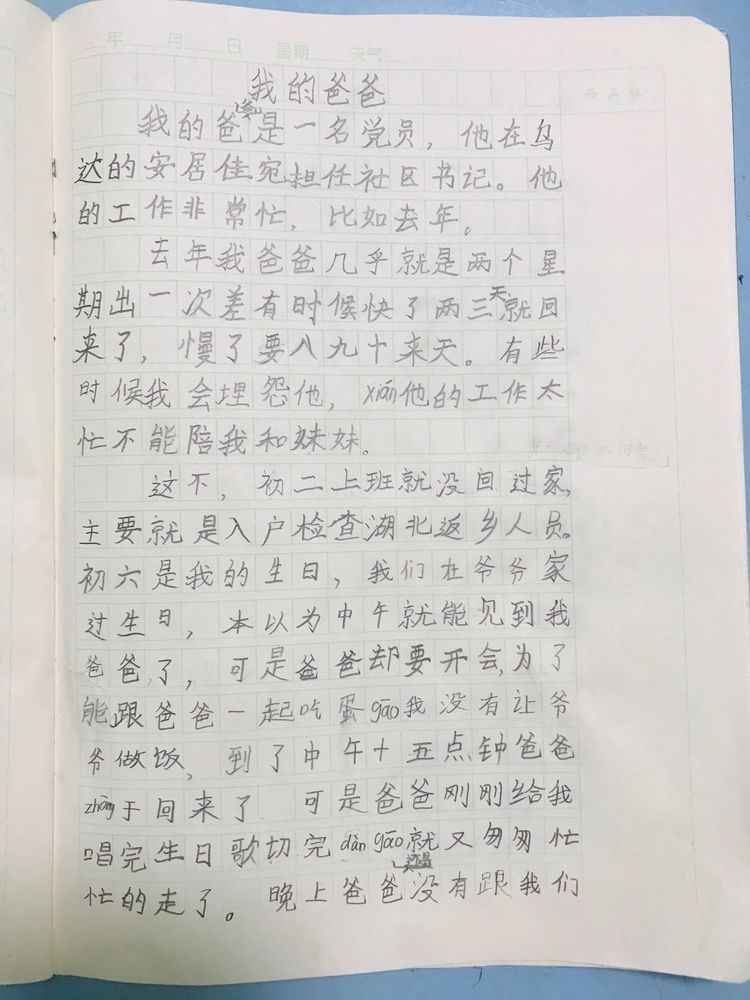 年 月 日 星期 天气
我的爸爸
我的爸爸是一名党员，他在乌
达的安居佳宛担任社区书记。他
的工作非常忙，比如去年。
去年我爸爸几乎就是两个星
期出一次差有时候快了两三天就回
来了，慢了要八九十来天。有些
时候我会埋怨他，xián他的工作太
忙不能陪我和妹妹。
这不，初二上班就没回过家，
主要就是入户检查湖北返乡人员。
初六是我的生日，我们在爷爷家
过生日，本以为中午就能见到我
爸爸了，可是爸爸却要开会，为了
能跟爸爸一起吃蛋gāo我没有让爷
爷做饭，到了中午十五点钟爸爸
zhōng于回来了 可是爸爸刚刚给我
唱完生日歌切完dàn gāo就又匆匆忙
忙的走了。晚上爸爸还是没有跟我们